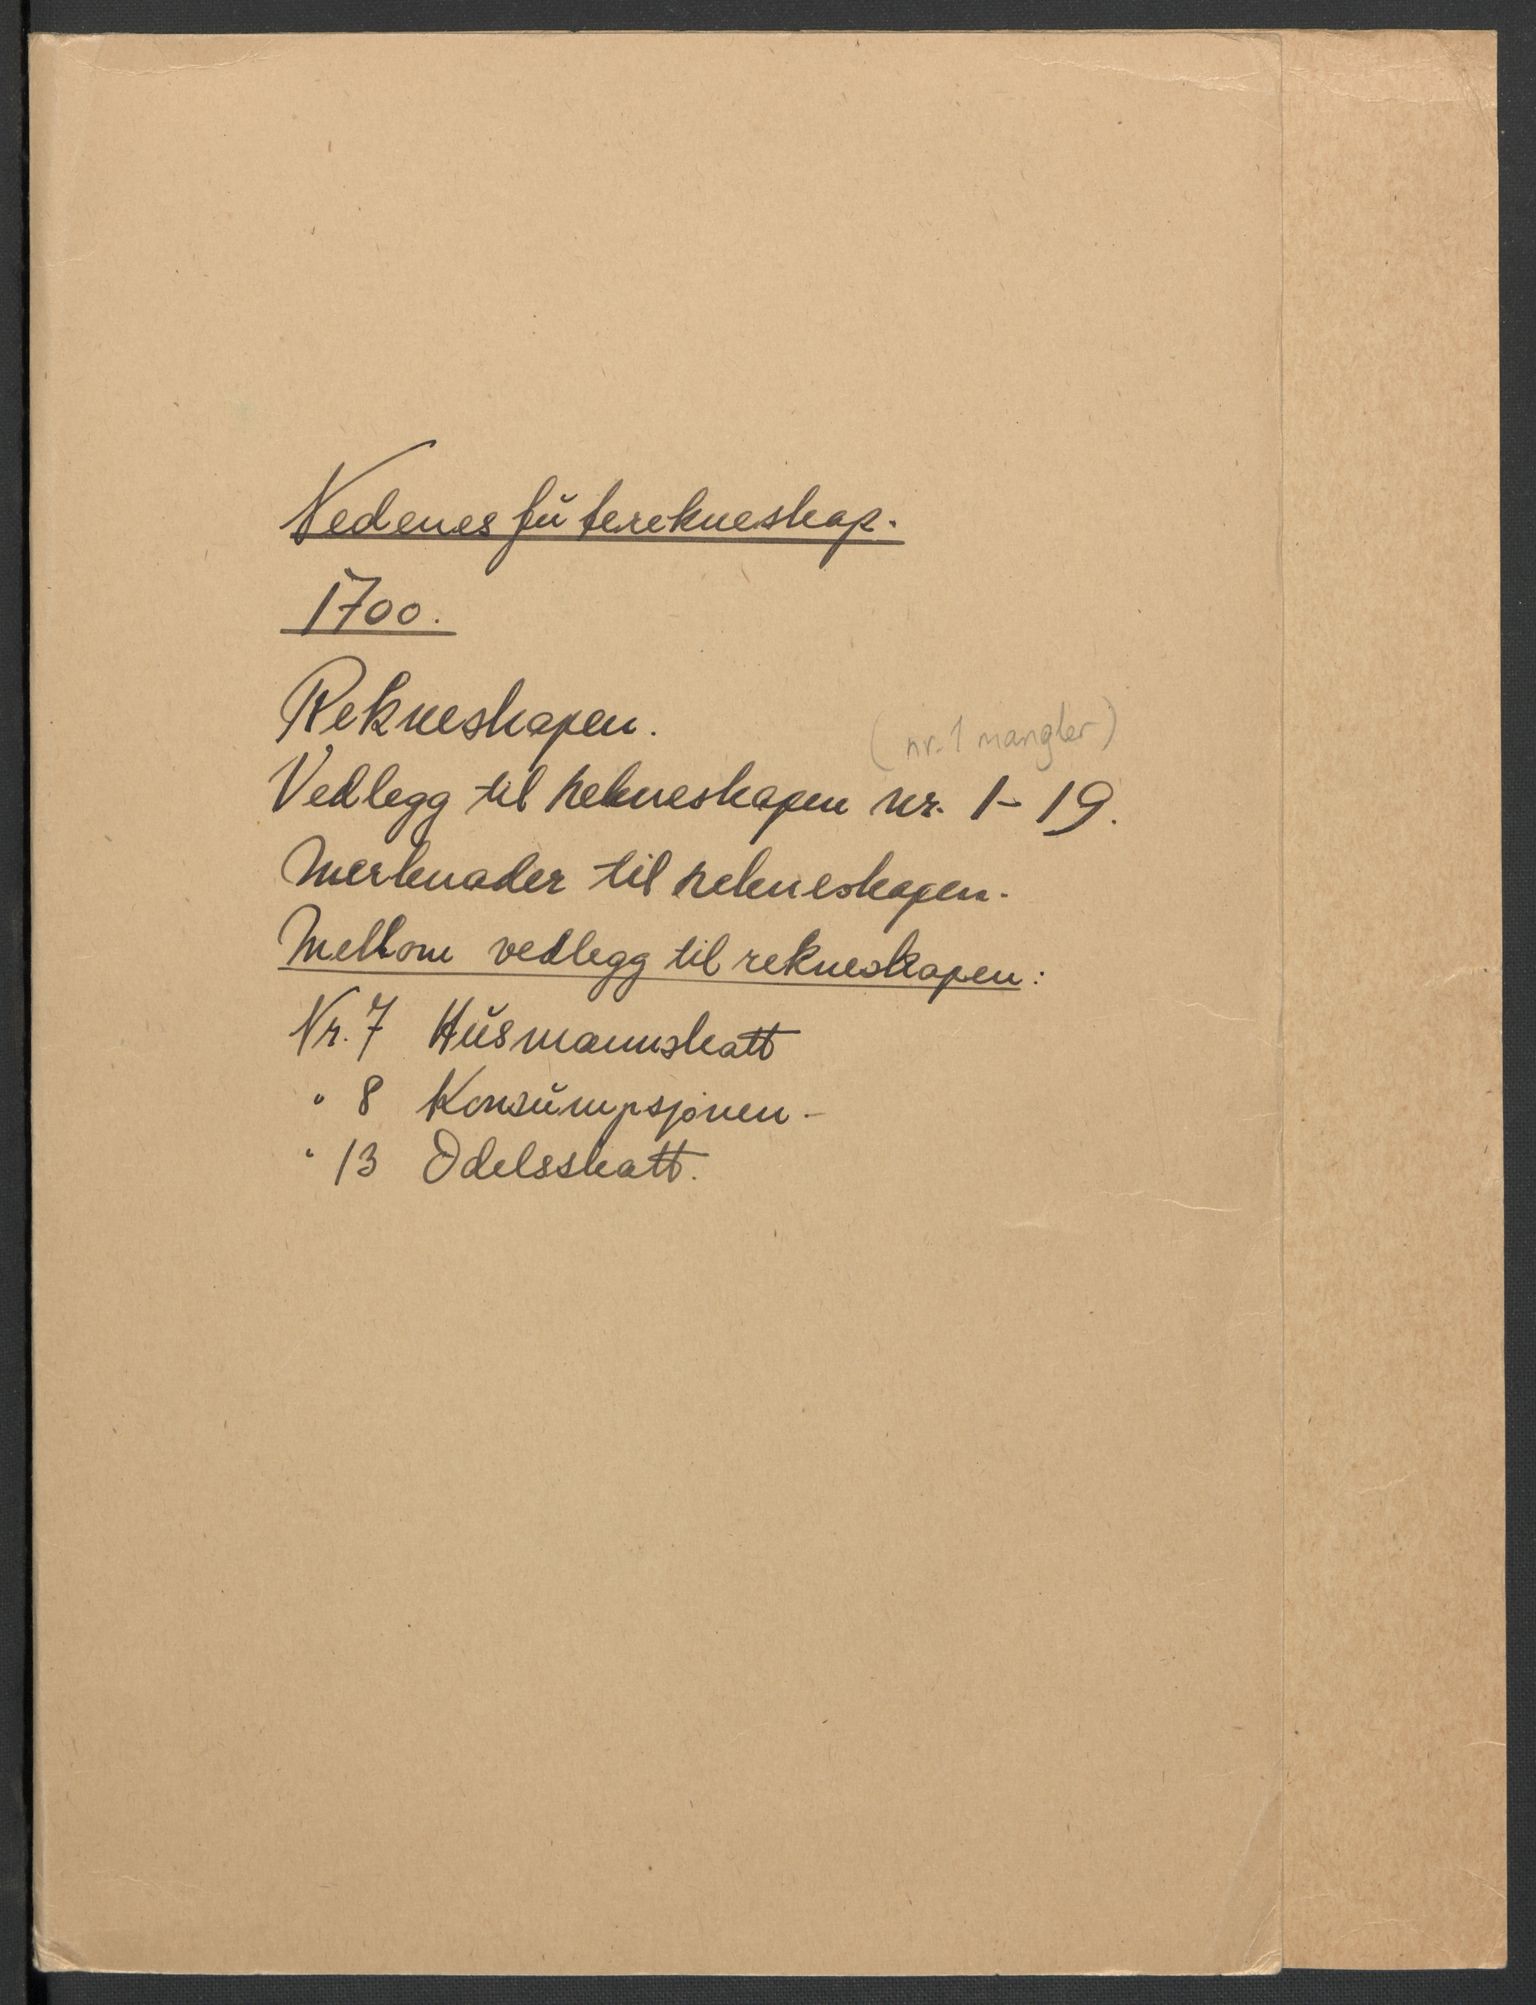 Nedenes futerekneskap.
1700.
Rekneskapen.
(nr. 1 mangler)
Vedlegg til rekneskapen nr. 1-19.
Merknader til rekneskapen.
Mellom vedlegg til rekneskapen:
Nr. 7 Husmannskatt
" 8 Konsumpsjonen-
" 13 Odelsskatt.